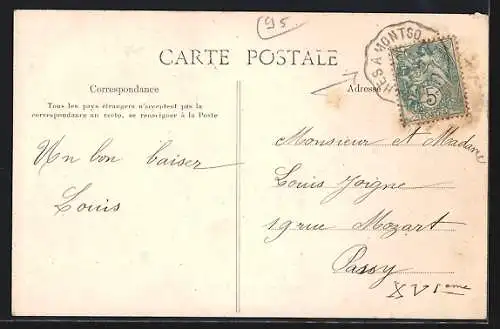 95
CARTE POSTALE
HES A MONTSO
5
Correspondance
Adresse
Tous les pays étrangers n'acceptent pas la
correspondance au recto, se renseigner à la Poste
Un bon baiser
Louis
Monsieur et Madame
Louis Joigne
19 rue Mozart
Passy
XVIeme